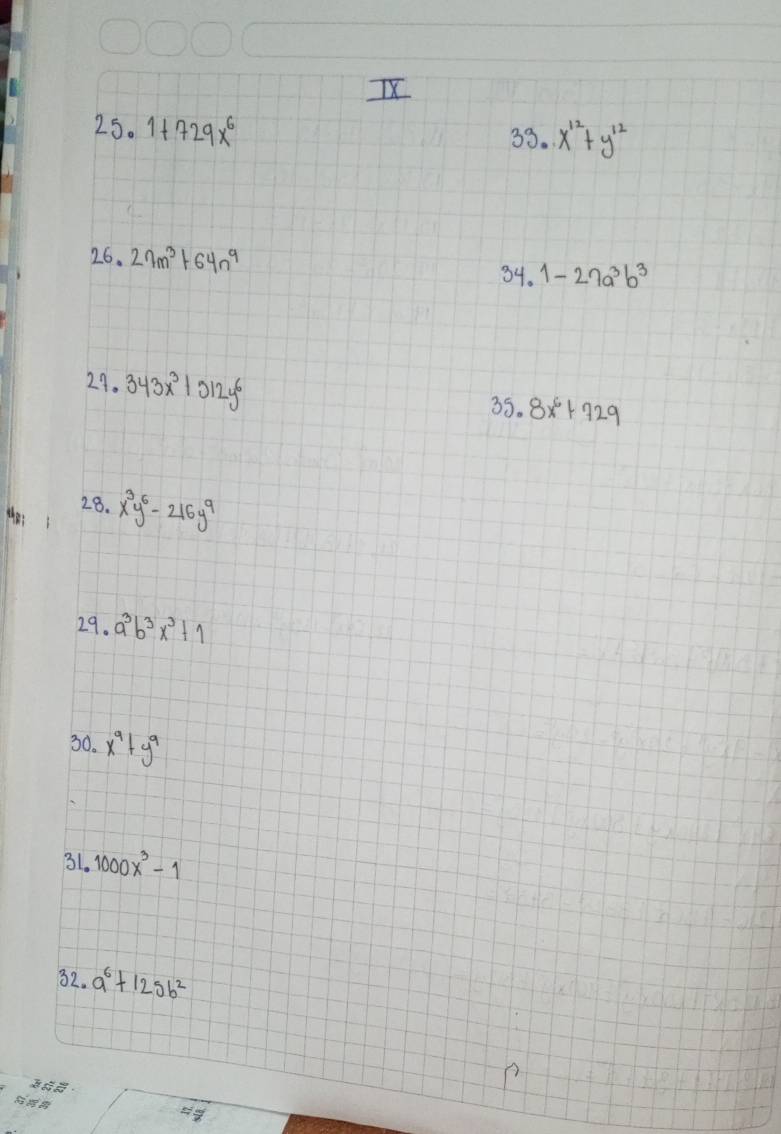 IX
25. 1+729x⁶
26. 27m³+64n⁹
27. 343x³+512y⁶
28. x³y⁶-216y⁹
29. a³b³x³+1
30. x⁹+y⁹
31. 1000x³-1
32. a⁶+125b²
33. x¹²+y¹²
34. 1-27a³b³
35. 8x⁶+729